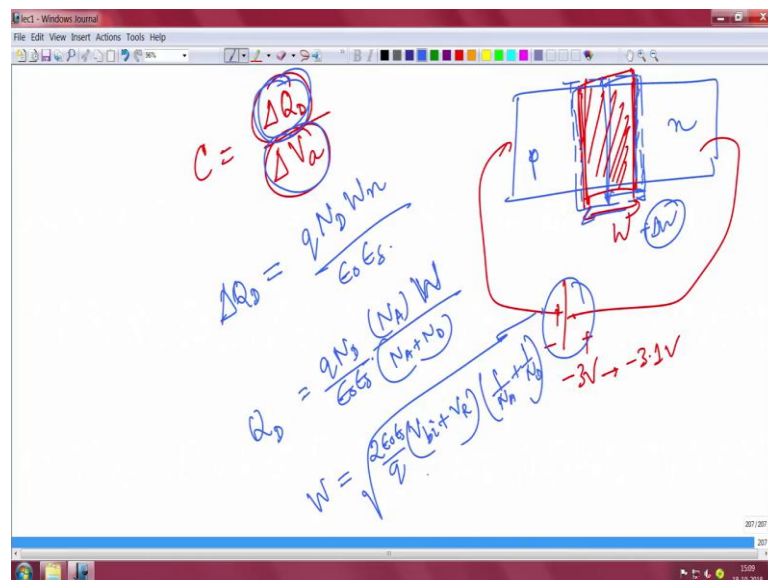 lec1 - Windows Journal
File Edit View Insert Actions Tools Help
96%
B I
C = ΔQ_D / ΔV_a
p n
W + ΔW
ΔQ_D = q N_D W_n / ε₀ε_s.
- +
-3V → -3.1V
Q_D = q N_D / ε₀ε_s · (N_A) W / (N_A + N_D)
W = √( 2ε₀ε_s / q (V_bi + V_R) (1/N_A + 1/N_D) )
207/207
207
15:09
18-10-2016